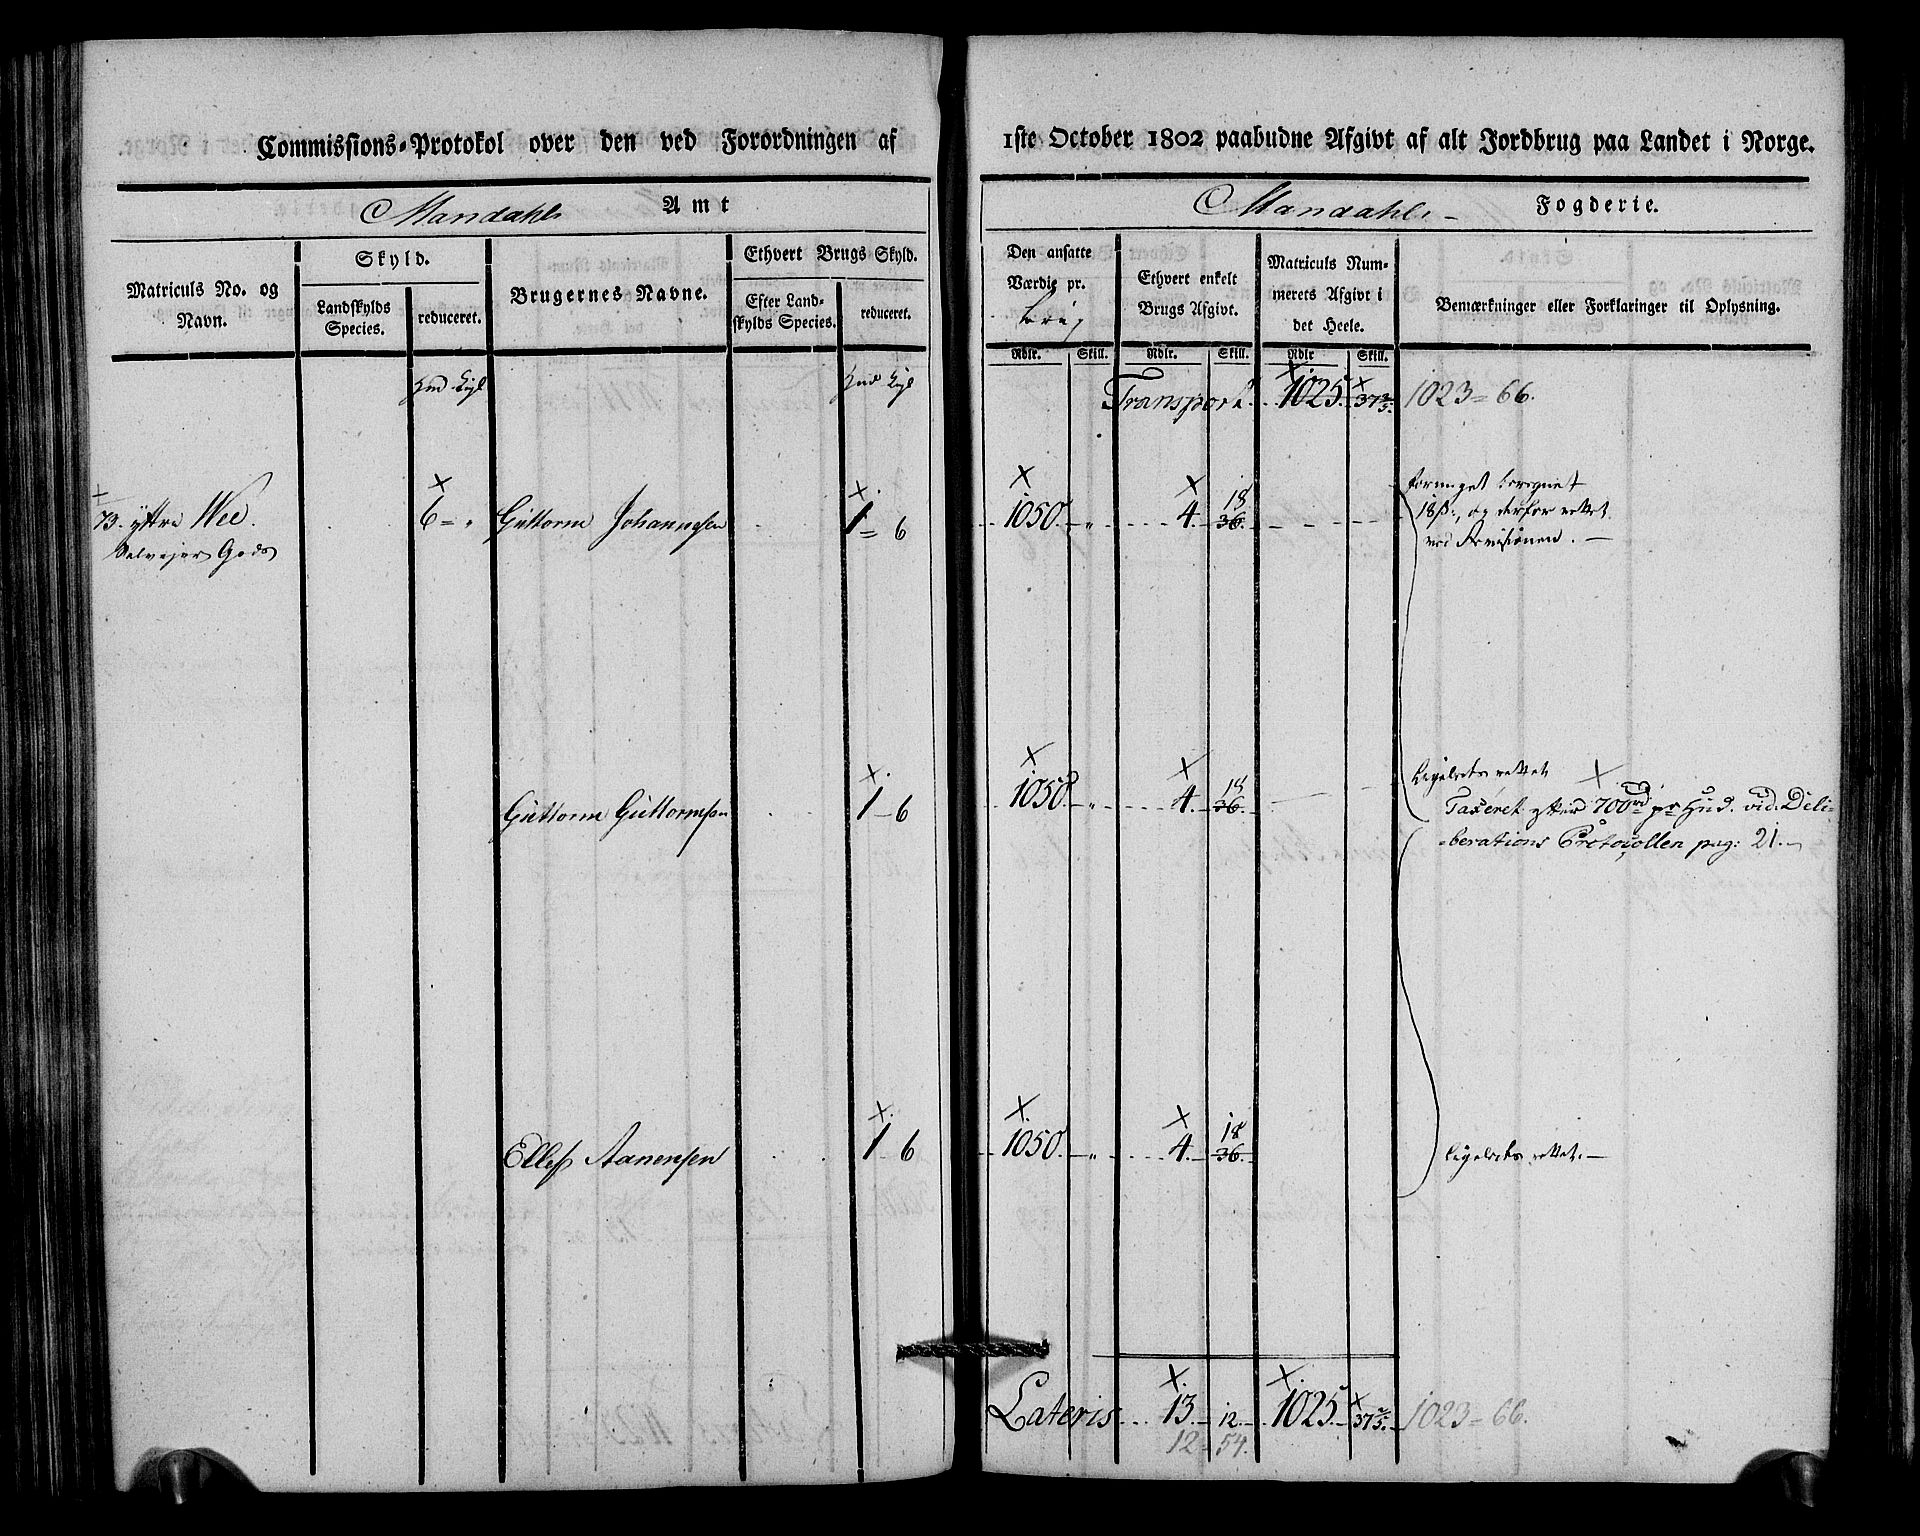 Commissions-Protokol over den ved Forordningen af
Mandahls Amt
Matriculs No. og Navn.
Skyld.
Landskylds Species.
reduceret.
Brugernes Navne.
Ethvert Brugs Skyld.
Efter Landskylds Species.
reduceret.
73. yttre Wee. 6 = „ Guttorm Johannesen 1 = 6
Selvejer Gods
Guttorm Guttormsen 1 - 6
Ellef Aanensen 1 - 6
1ste October 1802 paabudne Afgivt af alt Jordbrug paa Landet i Norge.
Mandahls Fogderie.
Den ansatte Værdie pr.
Ethvert enkelt Brugs Afgivt.
Matriculs Nummerets Afgivt i det Heele.
Bemærkninger eller Forklaringer til Oplysning.
Rdlr. Skill. Rdlr. Skill. Rdlr Skill.
Transport. 1025. 37 3/5. 1023 = 66.
1050. „ 4. 18 36.
18 ß., og derfor rettet
ved Revisionen. —
1050. „ 4. 18 36.
Ligeledes rettet
Taxeret efter 700 rd pr Hud. vid. Deli-
=berations Protocollen pag: 21. —
1050. „ 4. 18 36.
Ligeledes rettet. —
Lateris 13. 12. 1025. 37 3/5. 1023 = 66.
12 = 54.